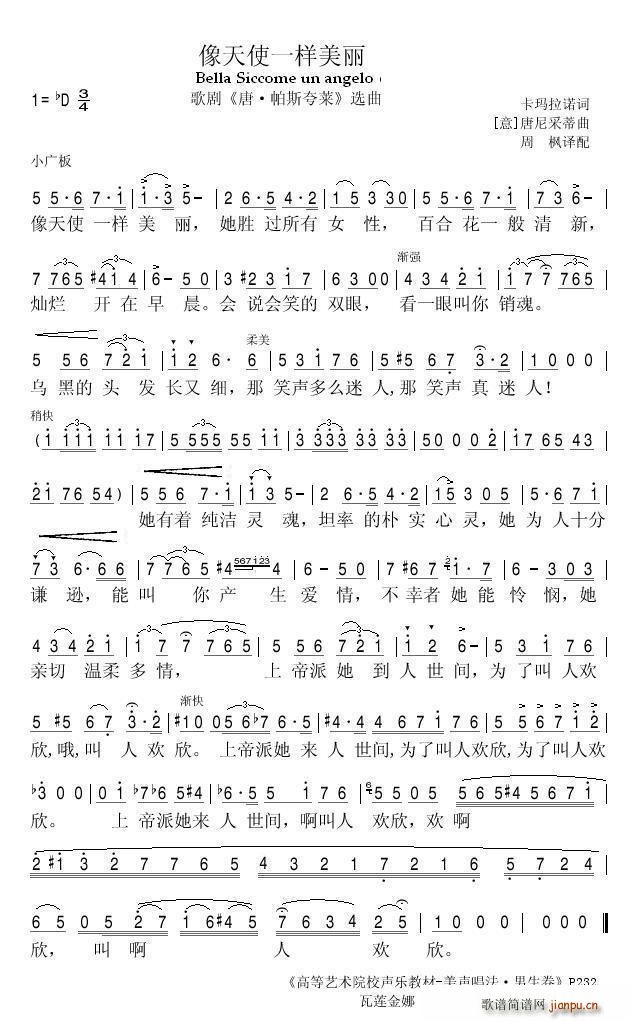 像天使一样美丽
Bella Siccome un angelo
1= ♭D 3/4
歌剧《唐·帕斯夸莱》选曲
卡玛拉诺词
[意]唐尼采蒂曲
周 枫译配
小广板
5 5·6 7·1 | 1·3 5- | 2 6·5 4·2 | 1 5 3 3 0 | 5·5 1·7 | 6 5- |
像天使 一样 美 丽, 她胜 过所有 女 性, 百合 花一 般 清 新,
渐强
7 765 #4 1 4 | 6- 5 0 | 3 #2 3 1 7 | 6 3 0 0 | 4 3 4 2 1 | 1 7 7 765 |
灿烂 开 在 早 晨。会 说会笑的 双眼, 看一眼叫你 销魂。
柔美
5 5 6 7 2 1 | 1 2 6· 6 | 5 3 1 7 6 | 5 #5 6 7 | 3·2 | 1 0 0 0 |
乌 黑的 头 发 长又 细,那 笑声多么迷 人,那 笑声 真 迷人!
稍快
(1 111 11 17 | 5 555 55 11 | 3 333 33 33 | 5 0 0 0 2 | 1 7 6 5 4 3 |
21 76 54) | 5 5 6 7·1 | 1 3 5- | 2 6·5 4·2 | 1 5 3 0 5 | 5·6 7 1 |
她有着 纯洁 灵 魂,坦率 的朴 实 心 灵,她 为 人十分
567123
7 3 6· 6 6 | 7 7 6 5 #4 | 4 3 0 5 | 7 #6 #6 7 1·7 | 6- 3 0 3 |
谦 逊, 能叫 你 产 生 爱 情, 不 幸者 她 能 怜 悯,她
4 3 4 2 1 | 1 7 7 7 6 5 | 5 5 6 7 2 1 | 1 2 6· 6 | 5 3 1 7 6 |
亲切 温柔 多 情, 上 帝派 她 到 人 世间,为 了叫 人欢
渐快
5 #5 6 7 3·2 | #1 0 0 5 6 ♭7 6·5 | #4·4 4 6 7 1 7 | 5 5 6 7 1 2 |
欣,哦,叫 人 欢 欣。 上帝派 她 来 人 世间,为了叫人欢欣,为了叫人欢
♭3 0 0 | 0 1 ♭7 ♭6 5 #4 | ♭6·5 2 0 1 7 | 6 5 2 0 | 5 6 5 #4 5 6 7 1 |
欣。 上 帝派她来 人 世间, 啊叫人 欢欣,欢 啊
2 #1 3 2 7 7 6 5 4 3 2 1 7 2 1 6 5 7 2 4 |
6 5 0 5 2 7 1 6 #4 5 | 7 6 3 4 2 | 1 0 0 0 | 0 0 0 ‖
欣, 叫 啊 人 欢 欣。
《高等艺术院校声乐教材-美声唱法·男生卷》P232
瓦莲金娜
歌谱简谱网 jianpu.cn